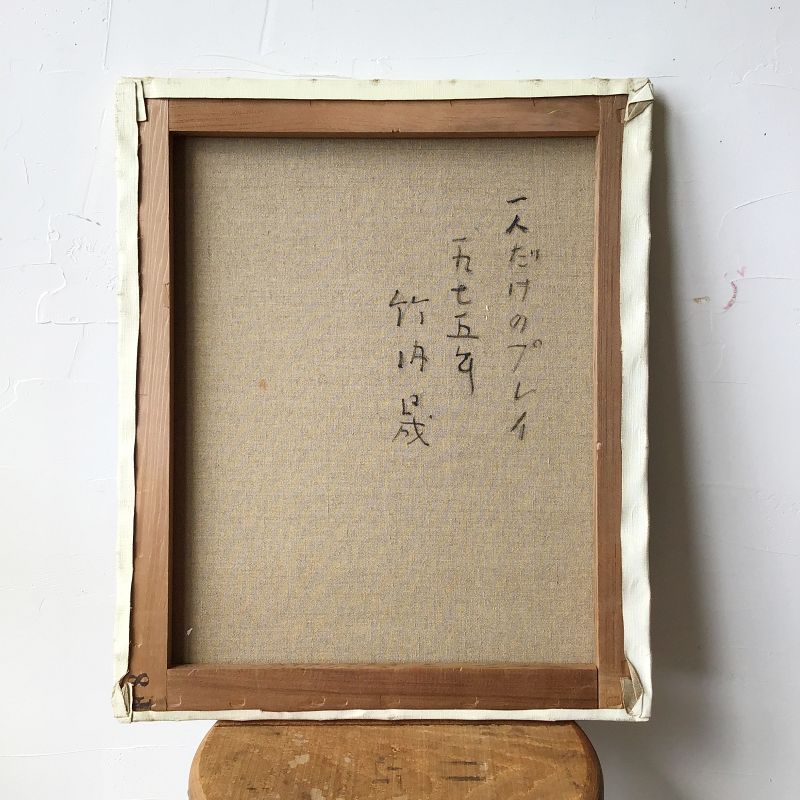 一人だけのプレイ
一九七五年
竹内晟
F8